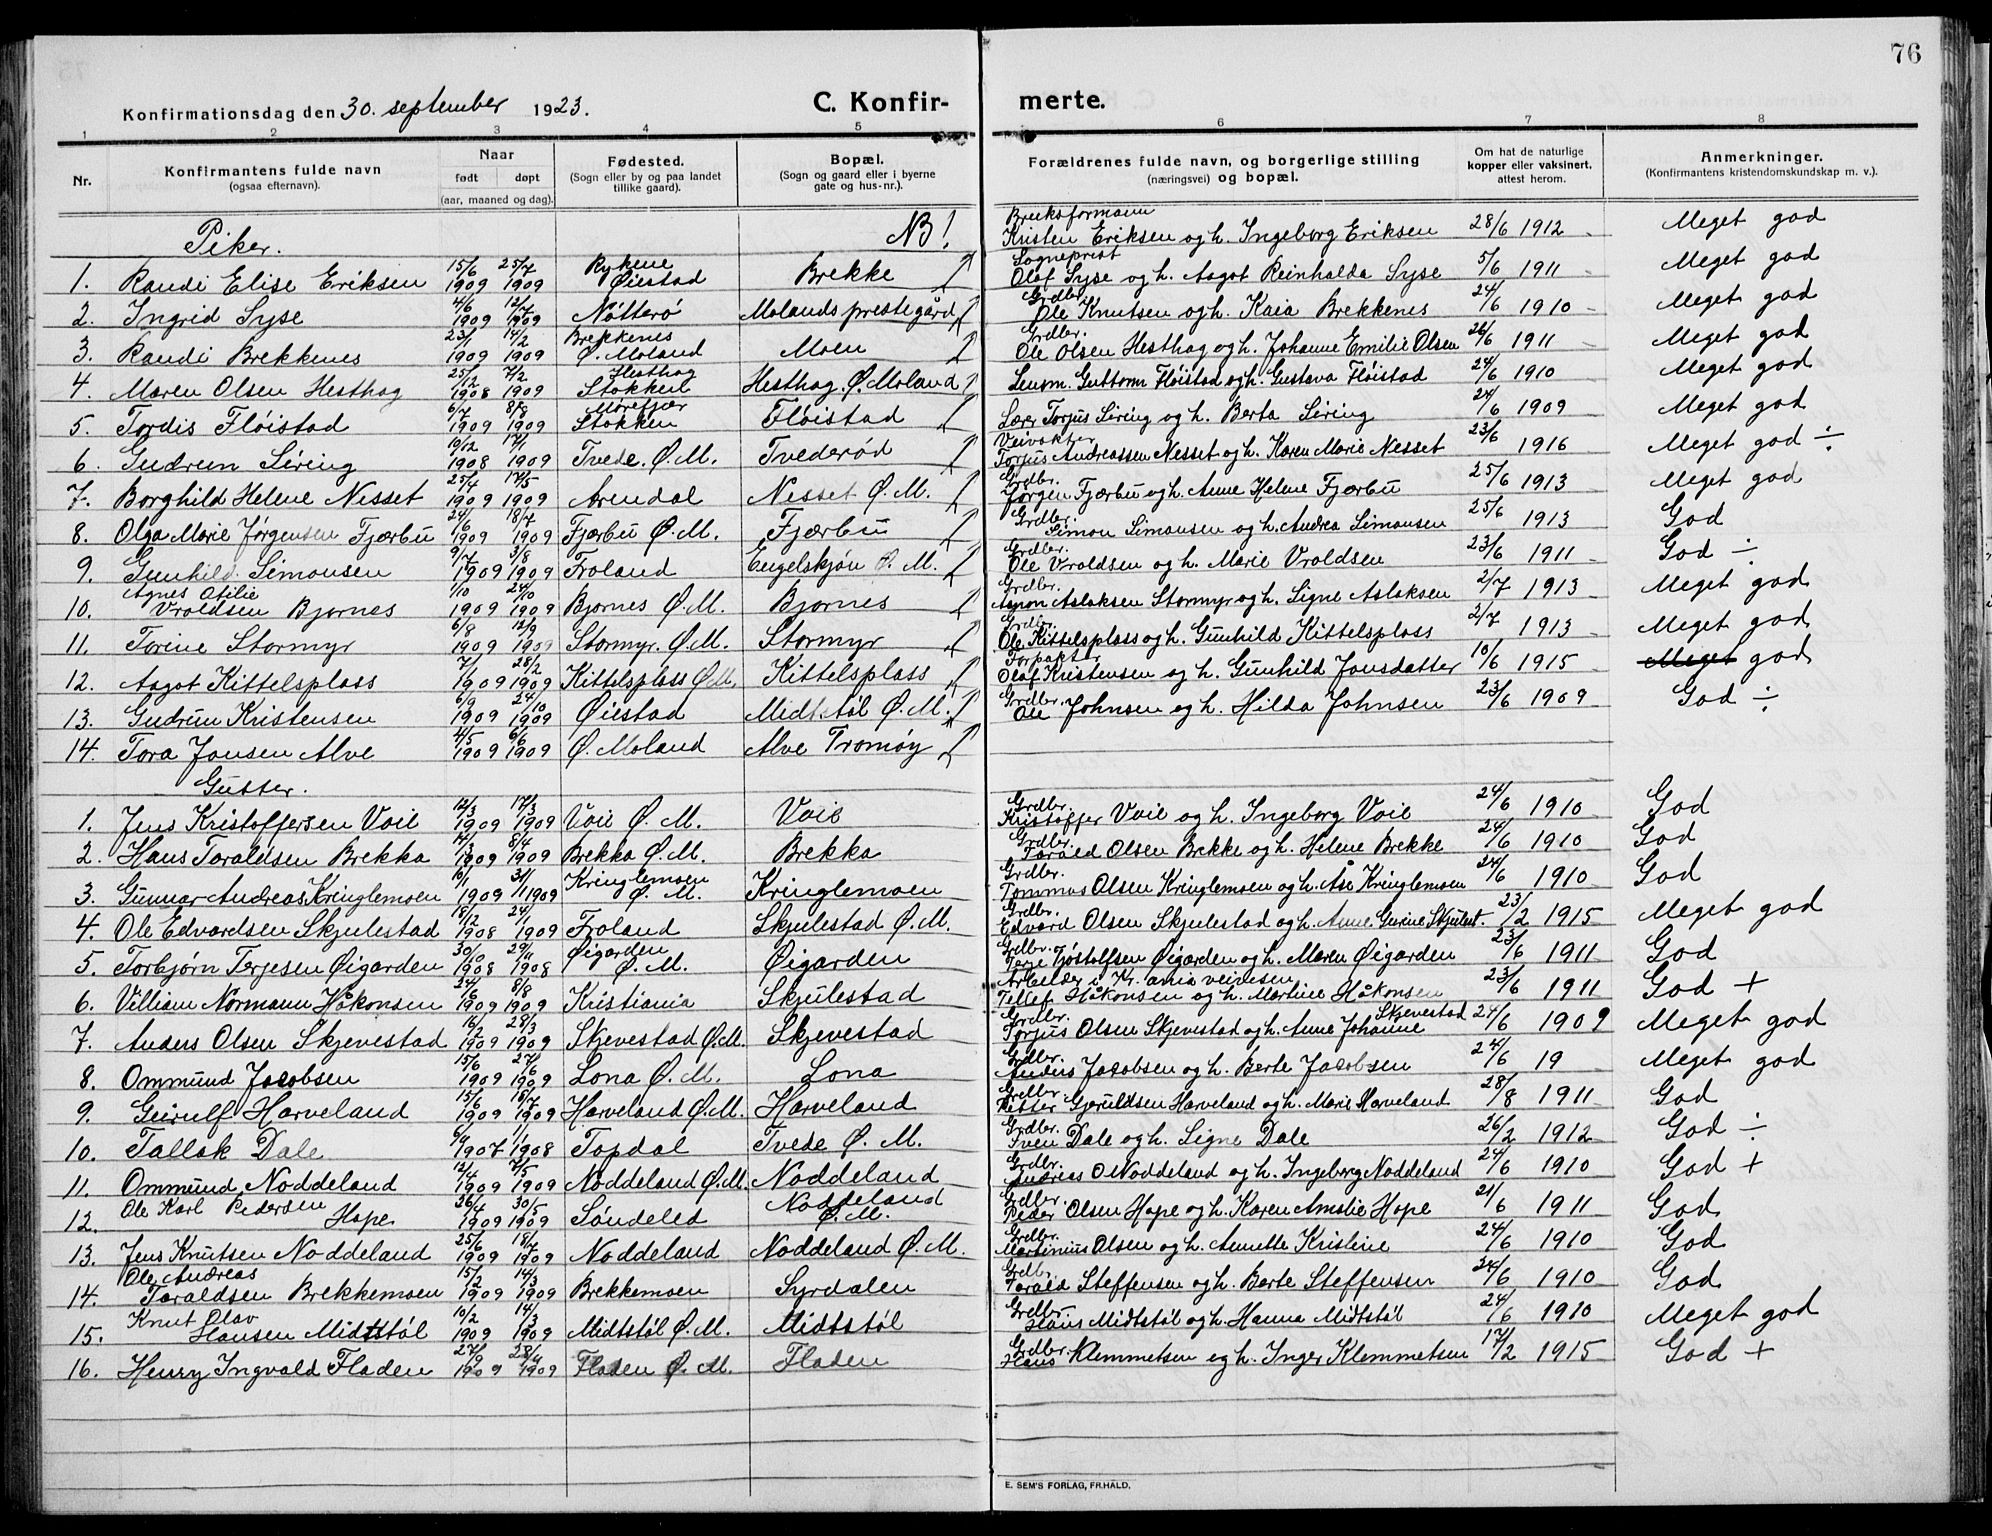 76
Konfirmationsdag den 30. september 1923.
C. Konfir- merte.
1 2 3 4 5 6 7 8
Nr.
Konfirmantens fulde navn
(ogsaa efternavn).
Naar
født døpt
(aar, maaned og dag).
Fødested.
(Sogn eller by og paa landet
tillike gaard).
Bopæl.
(Sogn og gaard eller i byerne
gate og hus-nr.).
Forældrenes fulde navn, og borgerlige stilling
(næringsvei) og bopæl.
Om hat de naturlige
kopper eller vaksinert,
attest herom.
Anmerkninger.
(Konfirmantens kristendomskundskap m. v.).
Piker. NB!
1. Randi Elise Eriksen 15/6 1909 25/7 1909 Rykene Øiestad Brekke
2. Ingrid Syse 4/6 1909 12/7 1909 Nøtterø Molands prestegård
3. Randi Brekkenes 23/1 1909 14/2 1909 Brekkenes Ø. Moland Moen
4. Maren Olsen Hesthag 25/12 1908 7/2 1909 Hesthag Stokken Hesthag. Ø. Moland
5. Tordis Fløistad 6/7 1909 8/8 1909 Morefjær Stokken Fløistad
6. Gudrun Siring 10/12 1908 17/1 1909 Tvede. Ø. M. Tvederød
7. Borghild Helene Nesset 25/4 1909 17/5 1909 Arendal Nesset Ø. M.
8. Olga Marie Jørgensen Fjærbu 24/6 1909 18/7 1909 Fjærbu Ø. M. Fjærbu
9. Gunhild Simonsen 9/7 1909 3/8 1909 Froland Engelskjøn Ø. M.
10. Agnes Otilie Vroldsen Bjornes 1/10 1909 24/10 1909 Bjornes Ø. M. Bjornes
11. Torine Stormyr 6/8 1909 12/9 1909 Stormyr. Ø. M. Stormyr
12. Aagot Kittelsplass 7/1 1909 28/2 1909 Kittelsplass Ø. M. Kittelsplass
13. Gudrun Kristensen 6/9 1909 24/10 1909 Øiestad Midtstøl Ø. M.
14. Tora Jonsen Alve 4/5 1909 6/6 1909 Ø. Moland Alve Tromøy
Gutter.
1. Jens Kristoffersen Voie 12/3 1909 17/3 1909 Voie Ø. M. Voie
2. Hans Toraldsen Brekka 1909 8/4 1909 Brekka Ø. M. Brekka
3. Gunnar Andreas Kringlemoen 10/1 1909 31/1 1909 Kringlemoen Ø. M. Kringlemoen
4. Ole Edvardsen Skjulestad 18/12 1908 24/1 1909 Froland Skjulestad Ø. M.
5. Torbjørn Terjesen Øigarden 30/10 1908 29/11 1908 Øigarden Ø. M. Øigarden
6. Villiam Normann Håkonsen 24/6 1909 8/8 1909 Kristiania Skjulestad
7. Anders Olsen Skjevestad 16/2 1909 28/3 1909 Skjevestad Ø. M. Skjevestad
8. Ommund Jacobsen 15/6 1909 27/6 1909 Lona Ø. M. Lona
9. Geirulf Harveland 15/6 1909 18/7 1909 Harveland Ø. M. Harveland
10. Tallak Dale 1907 1/1 1908 Topdal Tvede Ø. M.
11. Ommund Noddeland 12/4 1909 7/5 1909 Noddeland Ø. M. Noddeland
12. Ole Karl Pedersen Hope 26/4 1909 30/5 1909 Søndeled Noddeland Ø. M.
13. Jens Knutsen Noddeland 25/6 1909 18/7 1909 Noddeland Noddeland Ø. M.
14. Ole Andreas Toraldsen Brekkemoen 15/2 1909 14/3 1909 Brekkemoen Syrdalen
15. Knut Olav Hansen Midtstøl 10/2 1909 14/3 1909 Midtstøl Ø. M. Midtstøl
16. Henry Ingvald Fladen 27/9 1909 28/11 1909 Fladen Ø. M. Fladen
Bruksformann Kristen Eriksen og h. Ingeborg Eriksen 28/6 1912 Meget god
Sogneprest Olaf Syse og h. Aagot Reinholda Syse 5/6 1911 Meget god
Grdbr. Ole Knutsen og h. Kaia Brekkenes 24/6 1910 Meget god
Grdbr. Ole Olsen Hesthag og h. Johanne Emilie Olsen 26/6 1911 Meget god
Lensm. Guttorm Fløistad og h. Gustava Fløistad 24/6 1910 Meget god
Lær. Torjus Siring og h. Berta Siring 24/6 1909 Meget god
Veivokter Torjus Andreassen Nesset og h. Karen Marie Nesset 23/6 1916 Meget god ÷
Grdbr. Jørgen Fjærbu og h. Anne Helene Fjærbu 25/6 1913 Meget god
Grdbr. Simon Simonsen og h. Andrea Simonsen 25/6 1913 God
Grdbr. Ole Vroldsen og h. Marie Vroldsen 23/6 1911 God ÷
Grdbr. Aanon Aslaksen Stormyr og h. Signe Aslaksen 2/7 1913 Meget god
Grdbr. Ole Kittelsplass og h. Gunhild Kittelsplass 2/7 1913 Meget god
Forpakter Olaf Kristensen og h. Gunhild Jonsdatter 10/6 1915 Meget god
Grdbr. Ole Johnsen og h. Hilda Johnsen 23/6 1909 God ÷
Grdbr. Kristoffer Voie og h. Ingeborg Voie 24/6 1910 God
Grdbr. Torald Olsen Brekke og h. Helene Brekke 24/6 1910 God
Grdbr. Tommas Olsen Kringlemoen og h. Åse Kringlemoen 24/6 1910 God
Grdbr. Edvard Olsen Skjulestad og h. Anne Gurine Skjulest. 23/2 1915 Meget god
Grdbr. Terje Tjøstolfsen Øigarden og h. Maren Øigarden 23/6 1911 God
Arbeider i Kr.ania veivesen Tellef Håkonsen og h. Martine Håkonsen 23/6 1911 God +
Grdbr. Torjus Olsen Skjevestad og h. Anne Johanne Skjevestad 24/6 1909 Meget god
Grdbr. Anders Jacobsen og h. Berte Jacobsen 24/6 19 Meget god
Grdbr. Petter Gjeruldsen Harveland og h. Marie Harveland 28/8 1911 God
Grdbr. Sven Dale og h. Signe Dale 26/2 1912 God ÷
Grdbr. Andreas O Noddeland og h. Ingeborg Noddeland 24/6 1910 God +
Grdbr. Peder Olsen Hope og h. Karen Amalie Hope 21/6 1911 God
Grdbr. Martinius Olsen og h. Annette Kristine 24/6 1910 God
Grdb. Torald Steffensen og h. Berte Steffensen 24/6 1910 God
Grdbr. Hans Midtstøl og h. Hanna Midtstøl 24/6 1910 Meget god
Grdbr. Hans Klemmetsen og h. Inger Klemmetsen 17/2 1915 God +
E. SEM'S FORLAG, FR.HALD.